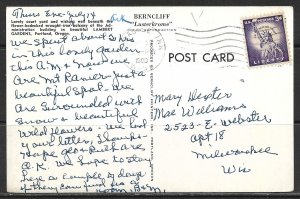 Thurs Eve - July 14
BERNCLIFF
"Lusterchrome"
Lovely court yard and wishing well beneath the
flower-bedecked wrought-iron balcony of the Ad-
ministration building in beautiful LAMBERT
GARDENS, Portland, Oregon.
We spent about 2 hrs
in this lovely garden
this A.M. & now we
are at Rainier - just a
beautiful spot. We
are surrounded with
snow & beautiful
wild flowers. We got
your letter, thanks -
hope also Ruth are
O.K. We hope to stay
here a couple of days
if they can find us a
POST CARD
LIBERTY
Mary Dexter
Mae Williams
2523-E. Webster
Apt 18
Milwaukee
Wis